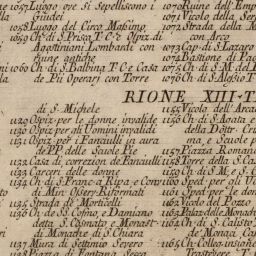 1057 Luogo ove si sepelliscono i
Giudei
1058 Luogo del Circo Massimo
1059 Ch: di S. Prisca T: C: e Ospiz: di
Agostiniani Lombardi con
Fune antiche
1060 Ch: di S. Balbina T: C: e Casa
de Pii Operarj con Torre
1070 Ruine dell' Emp
1071 Vicolo della Serp
1072 Strada della M
con Arco
1073 Cap: di S. Lazaro
1074 Bastione di Paolo
1075 Ch: di S. M: del P
1076 Ch: di S. Alessio T
RIONE XIII. T
di S. Michele
1129 Ospiz: per le donne invalide
1130 Ospiz: per gli Uomini invalidi
1131 Ospiz: per i Fanciulli in cura
de PP: delle Scuole Pie
1132 Casa di correzion de Fanciulli
1133 Carceri delle donne
1134 Ch: di S. Franc: a Ripa, e Conv:
di Min: Osser: Riformati
1135 Strada de Morticelli
1136 Ch: de SS. Cosmo, e Damiano
detta S. Cosmato e Monast:
di Monache di S. Chiara
1137 Mura di Settimio Severo
1138 Piazza di Fontana Secca
1155 Vicolo dell' Arca
1156 Ch: di S. Agata e
della Dottr: Cri
ma, e Scuole p
1157 Piazza Romana
1158 Torre della S. Ca
1159 Ch: di S. M: e S. G
1160 Sped: per gli Vo
1161 Sped: per le don
1162 Vicolo del Pozzo
1163 Palaz: delle Monach
1164 Ch: di S. Calisto
di Monaci Cas
1165 Ch: Colleg: insigne
Trastevere T: